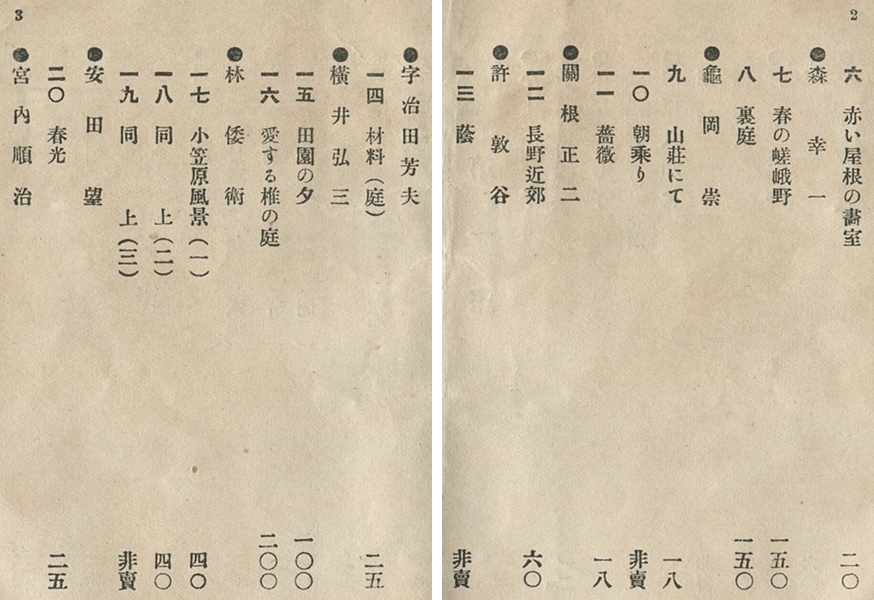 2
六 赤い屋根の畫室 二〇
●森幸一
七 春の嵯峨野 一五〇
八 裏庭 一五〇
●龜岡崇
九 山莊にて 一八
一〇 朝乘り 非賣
一一 薔薇 一八
●關根正二
一二 長野近郊 六〇
●許敦谷
一三 蔭 非賣
3
●字冶田芳夫
一四 材料(庭) 二五
●橫井弘三
一五 田園の夕 一〇〇
一六 愛する椎の庭 二〇〇
●林倭衛
一七 小笠原風景(一) 四〇
一八 同 上(二) 四〇
一九 同 上(三) 非賣
●安田望
二〇 春光 二五
●宮內順治